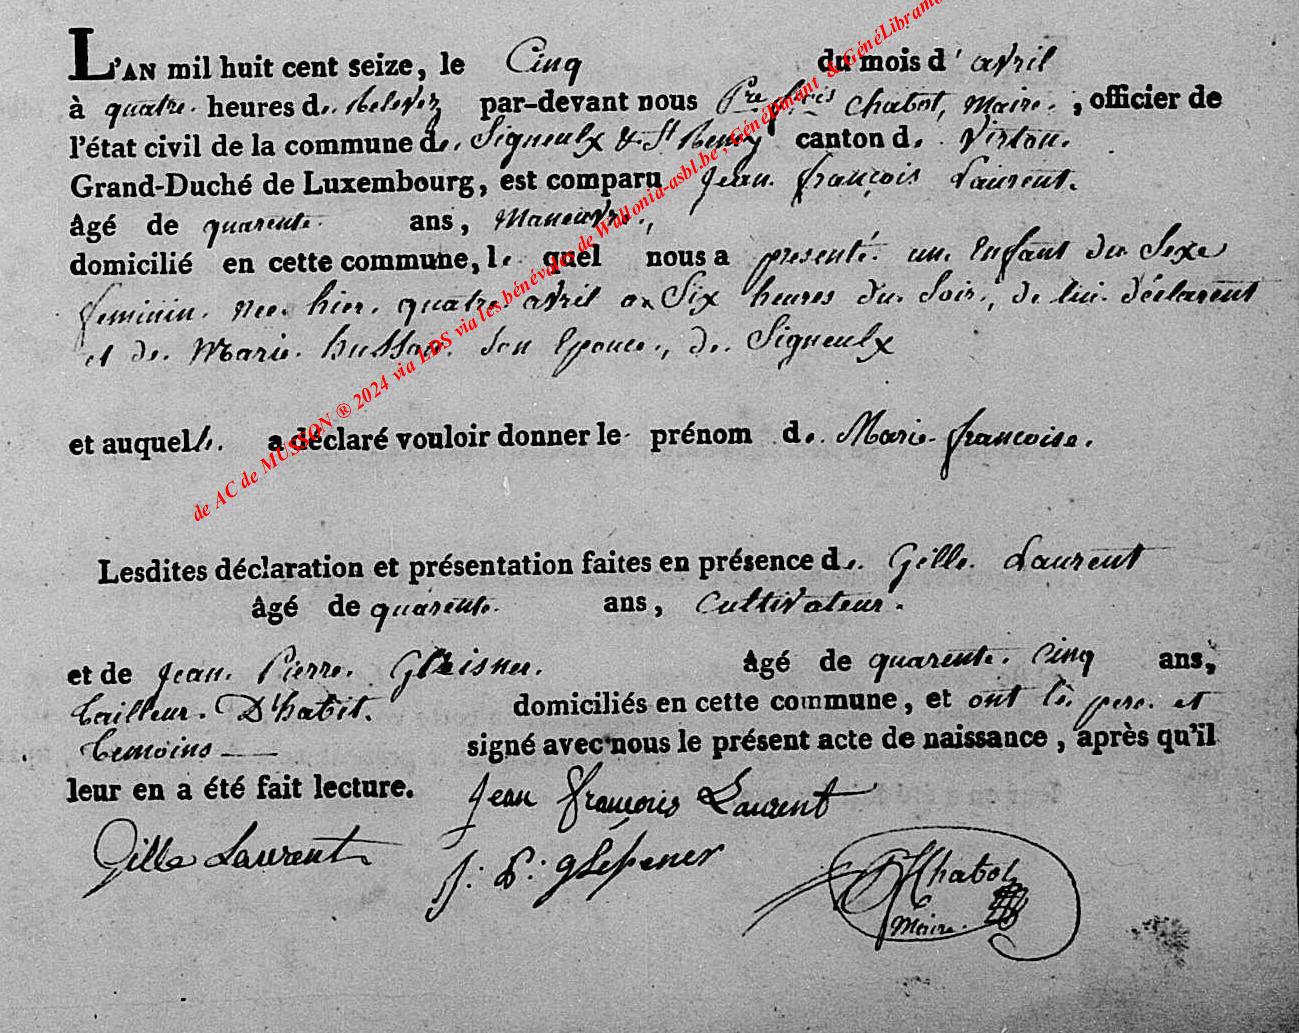 L'AN mil huit cent seize, le Cinq du mois d' avril
à quatre heures de Relevez par-devant nous Pre frcis Chabot, Maire, officier de
l'état civil de la commune de Signeulx & St Remy canton de Virton.
Grand-Duché de Luxembourg, est comparu Jean françois Laurent.
âgé de quarente ans, Maneuvre,
domicilié en cette commune, le quel nous a presenté un Enfant du Sexe
feminin nee hier quatre avril a Six heures du Soir, de lui déclarent
et de Marie husson Son Epouce, de Signeulx
et auquel a déclaré vouloir donner le prénom de Marie francoise.
Lesdites déclaration et présentation faites en présence de Gille Laurent
âgé de quarente ans, Cultivateur.
et de Jean Pierre Gleisner. âgé de quarente Cinq ans,
tailleur D'habit. domiciliés en cette commune, et ont le pere et
temoins signé avec nous le présent acte de naissance, après qu'il
leur en a été fait lecture. Jean François Laurent
Gille Laurent J: P: glesener
Chabot
Maire
de AC de MUSSON ® 2024 via LDS via les bénévoles de Wallonia-asbl.be, GénéDinant & GénéLibramont